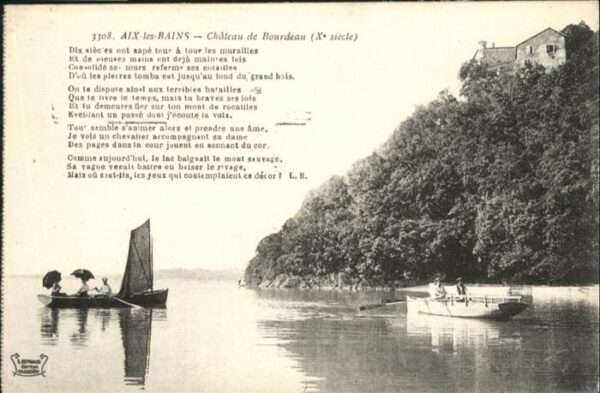 3308. AIX-les-BAINS — Château de Bourdeau (Xe siècle)
Dix siècles ont sapé tour à tour les murailles
Et de pieuses mains ont déjà maintes fois
Consolidé ses tours refermé ses entailles
D'où les pierres tombaient jusqu'au fond du grand bois.
On te dispute ainsi aux terribles batailles
Que te livre le temps, mais tu braves ses lois
Et tu demeures fier sur ton mont de rocailles
Eveillant un passé dont j'écoute la voix.
Tout semble s'animer alors et prendre une âme,
Je vois un chevalier accompagnant sa dame
Des pages dans la cour jouent en sonnant du cor.
Comme aujourd'hui, le lac baignait le mont sauvage,
Sa vague venait battre ou baiser le rivage,
Mais où sont-ils, les yeux qui contemplaient ce décor ? L. R.